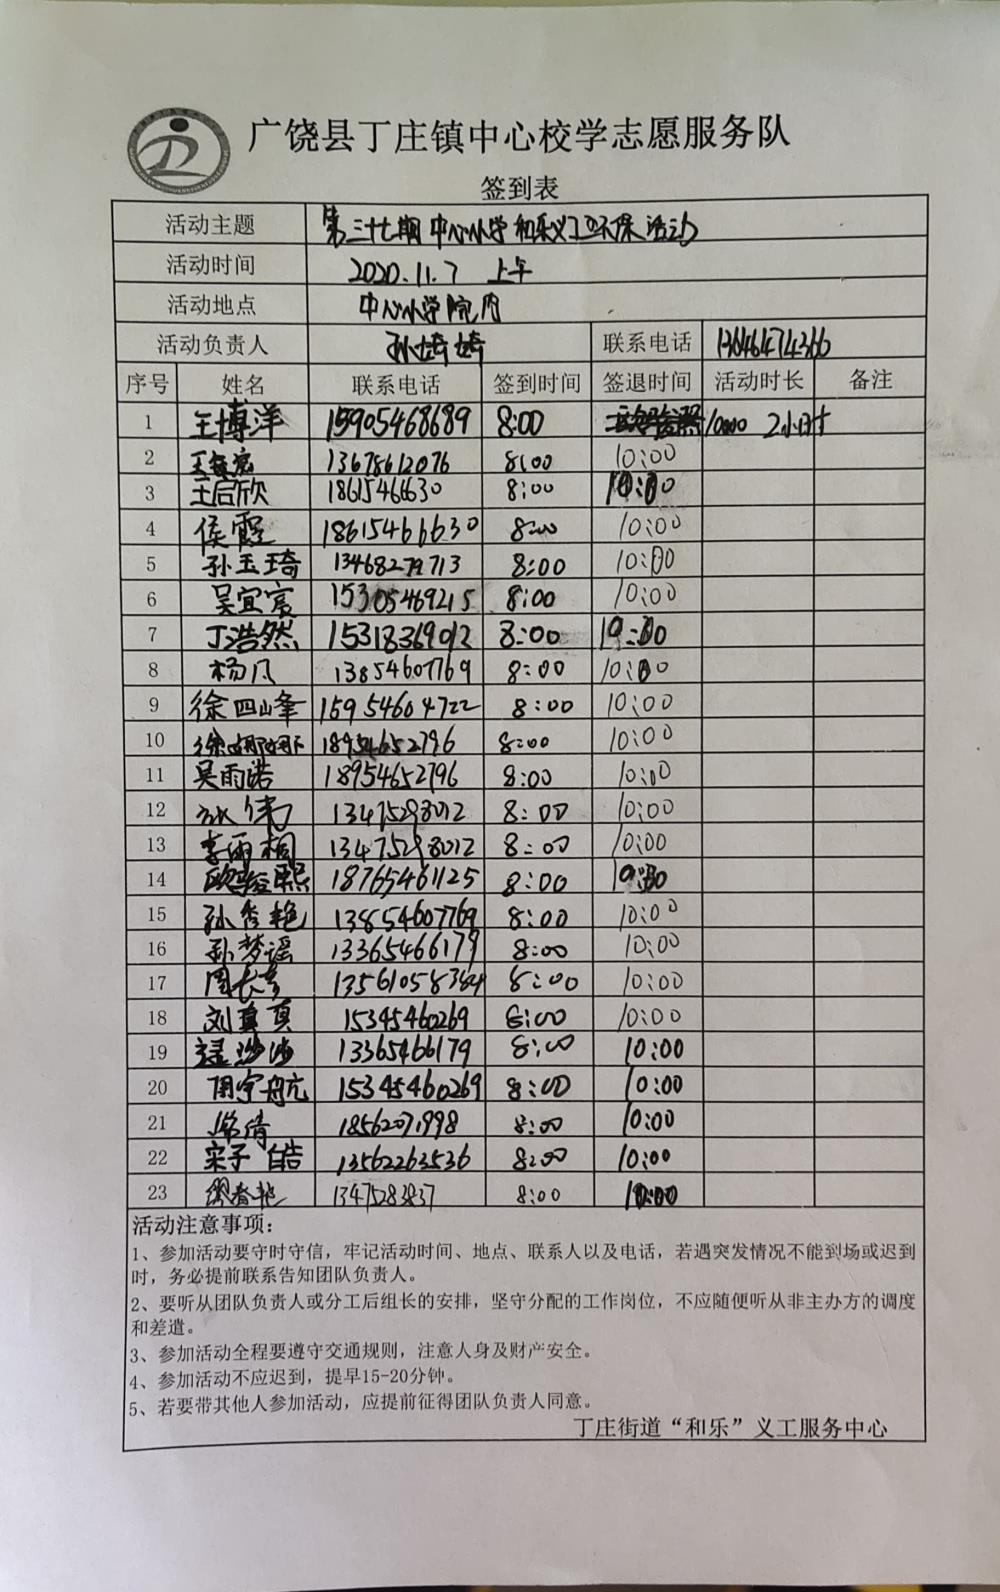 广饶县丁庄镇中心校学志愿服务队
签到表
活动主题 第三十七期中心小学和乐义工环保活动
活动时间 2020.11.7 上午
活动地点 中心小学院内
活动负责人 孙婷婷 联系电话 13646474366
序号 姓名 联系电话 签到时间 签退时间 活动时长 备注
1 王博洋 15905468689 8:00 10:00 2小时
2 13678612076 8:00 10:00
3 王启欣 1861546630 8:00 10:00
4 侯霞 18615466630 8:00 10:00
5 孙玉琦 13468279713 8:00 10:00
6 吴宜宸 15305469215 8:00 10:00
7 丁浩然 15318369012 8:00 10:00
8 杨凡 13854607769 8:00 10:00
9 徐四峰 15954604722 8:00 10:00
10 徐娜娜 18954652796 8:00 10:00
11 吴雨诺 18954652796 8:00 10:00
12 13475298012 8:00 10:00
13 李雨桐 13475298012 8:00 10:00
14 18765461125 8:00 10:00
15 孙秀艳 13854607769 8:00 10:00
16 孙梦谣 13365466179 8:00 10:00
17 周长彦 13561058384 8:00 10:00
18 刘真真 15345460269 8:00 10:00
19 13365466179 8:00 10:00
20 周宇航 15345460269 8:00 10:00
21 常倩 18562071998 8:00 10:00
22 宋子皓 13562263536 8:00 10:00
23 13475283837 8:00 10:00
活动注意事项：
1、参加活动要守时守信，牢记活动时间、地点、联系人以及电话，若遇突发情况不能到场或迟到
时，务必提前联系告知团队负责人。
2、要听从团队负责人或分工后组长的安排，坚守分配的工作岗位，不应随便听从非主办方的调度
和差遣。
3、参加活动全程要遵守交通规则，注意人身及财产安全。
4、参加活动不应迟到，提早15-20分钟。
5、若要带其他人参加活动，应提前征得团队负责人同意。
丁庄街道“和乐”义工服务中心